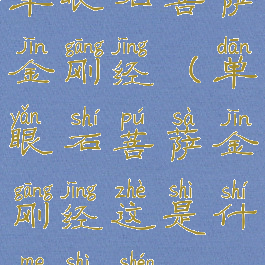 单眼石菩萨
jīn gāng jīng dān
金刚经（单
yǎn shí pú sà jīn
眼石菩萨金
gāng jīng zhè shì shí
刚经这是什
me shì shén